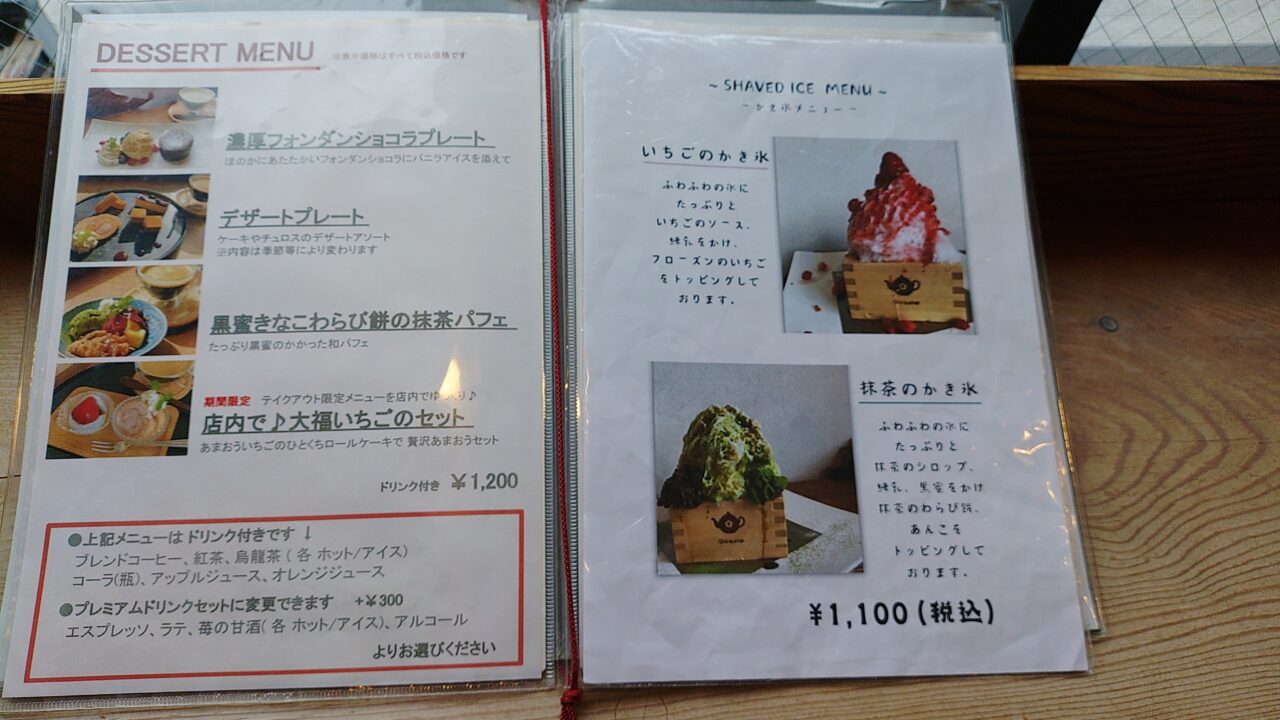 DESSERT MENU ※表示価格はすべて税込価格です
濃厚フォンダンショコラプレート
ほのかにあたたかいフォンダンショコラにバニラアイスを添えて
デザートプレート
ケーキやチュロスのデザートアソート
※内容は季節等により変わります
黒蜜きなこわらび餅の抹茶パフェ
たっぷり黒蜜のかかった和パフェ
期間限定 テイクアウト限定メニューを店内でゆっくり♪
店内で♪大福いちごのセット
あまおういちごのひとくちロールケーキで 贅沢あまおうセット
ドリンク付き ¥1,200
●上記メニューは ドリンク付きです ↓
ブレンドコーヒー、紅茶、烏龍茶 ( 各 ホット/アイス)
コーラ(瓶)、アップルジュース、オレンジジュース
●プレミアムドリンクセットに変更できます +¥300
エスプレッソ、ラテ、苺の甘酒( 各 ホット/アイス)、アルコール
よりお選びください
~ SHAVED ICE MENU ~
~ かき氷メニュー ~
いちごのかき氷
ふわふわの氷に
たっぷりと
いちごのソース、
練乳をかけ、
フローズンのいちご
をトッピングして
おります。
抹茶のかき氷
ふわふわの氷に
たっぷりと
抹茶のシロップ、
練乳、黒蜜をかけ
抹茶のわらび餅、
あんこを
トッピングして
おります。
¥1,100 (税込)